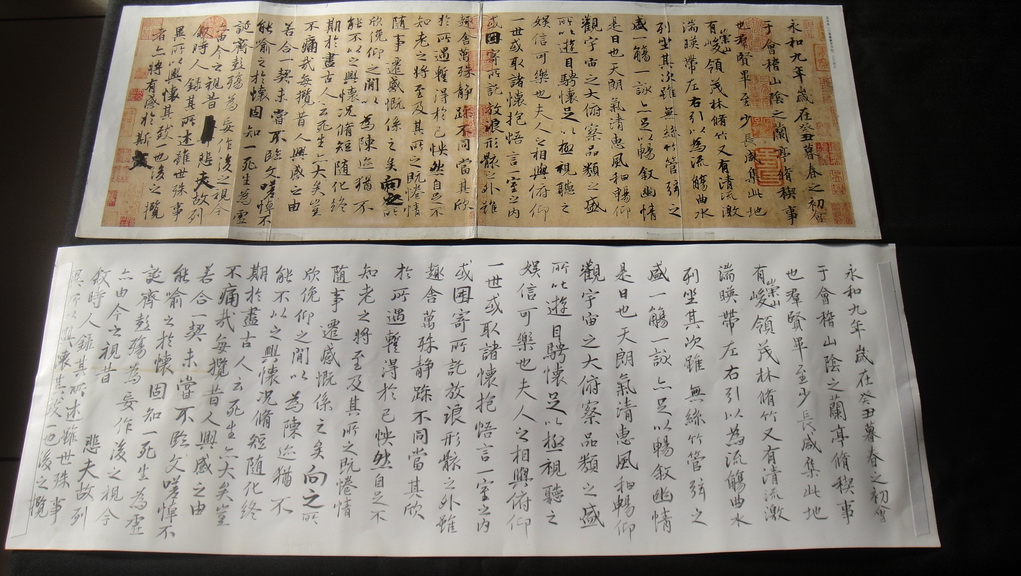 永和九年歲在癸丑暮春之初會
于會稽山陰之蘭亭脩稧事
也羣賢畢至少長咸集此地
有崇山峻領茂林脩竹又有清流激
湍暎帶左右引以為流觴曲水
列坐其次雖無絲竹管弦之
盛一觴一詠亦足以暢敘幽情
是日也天朗氣清惠風和暢仰
觀宇宙之大俯察品類之盛
所以遊目騁懷足以極視聽之
娛信可樂也夫人之相與俯仰
一世或取諸懷抱悟言一室之內
或因寄所託放浪形骸之外雖
趣舍萬殊靜躁不同當其欣
於所遇蹔得於己怏然自足不
知老之將至及其所之既惓情
隨事遷感慨係之矣向之所
欣俛仰之閒以為陳迹猶不
能不以之興懷況脩短隨化終
期於盡古人云死生亦大矣豈
不痛哉每攬昔人興感之由
若合一契未嘗不臨文嗟悼不
能喻之於懷固知一死生為虛
誕齊彭殤為妄作後之視今
亦由今之視昔 悲夫故列
敘時人錄其所述雖世殊事
異所以興懷其致一也後之攬
者亦將有感於斯文
永和九年歲在癸丑暮春之初會
于會稽山陰之蘭亭脩稧事
也羣賢畢至少長咸集此地
有崇山峻領茂林脩竹又有清流激
湍暎帶左右引以為流觴曲水
列坐其次雖無絲竹管弦之
盛一觴一詠亦足以暢敘幽情
是日也天朗氣清惠風和暢仰
觀宇宙之大俯察品類之盛
所以遊目騁懷足以極視聽之
娛信可樂也夫人之相與俯仰
一世或取諸懷抱悟言一室之內
或因寄所託放浪形骸之外雖
趣舍萬殊靜躁不同當其欣
於所遇蹔得於己怏然自足不
知老之將至及其所之既惓情
隨事遷感慨係之矣向之所
欣俛仰之閒以為陳迹猶不
能不以之興懷況脩短隨化終
期於盡古人云死生亦大矣豈
不痛哉每攬昔人興感之由
若合一契未嘗不臨文嗟悼不
能喻之於懷固知一死生為虛
誕齊彭殤為妄作後之視今
亦由今之視昔 悲夫故列
敘時人錄其所述雖世殊事
異所以興懷其致一也後之攬